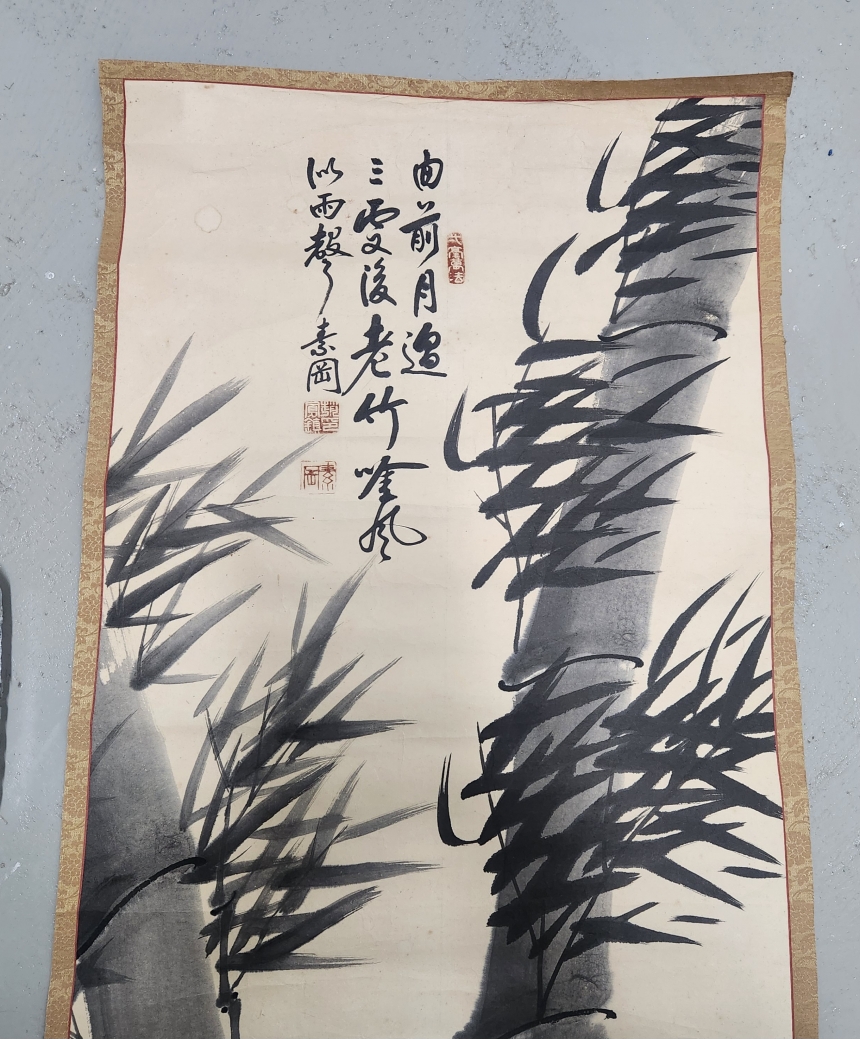 囱前月過
三更後老竹唫風
似雨聲
素岡
素岡